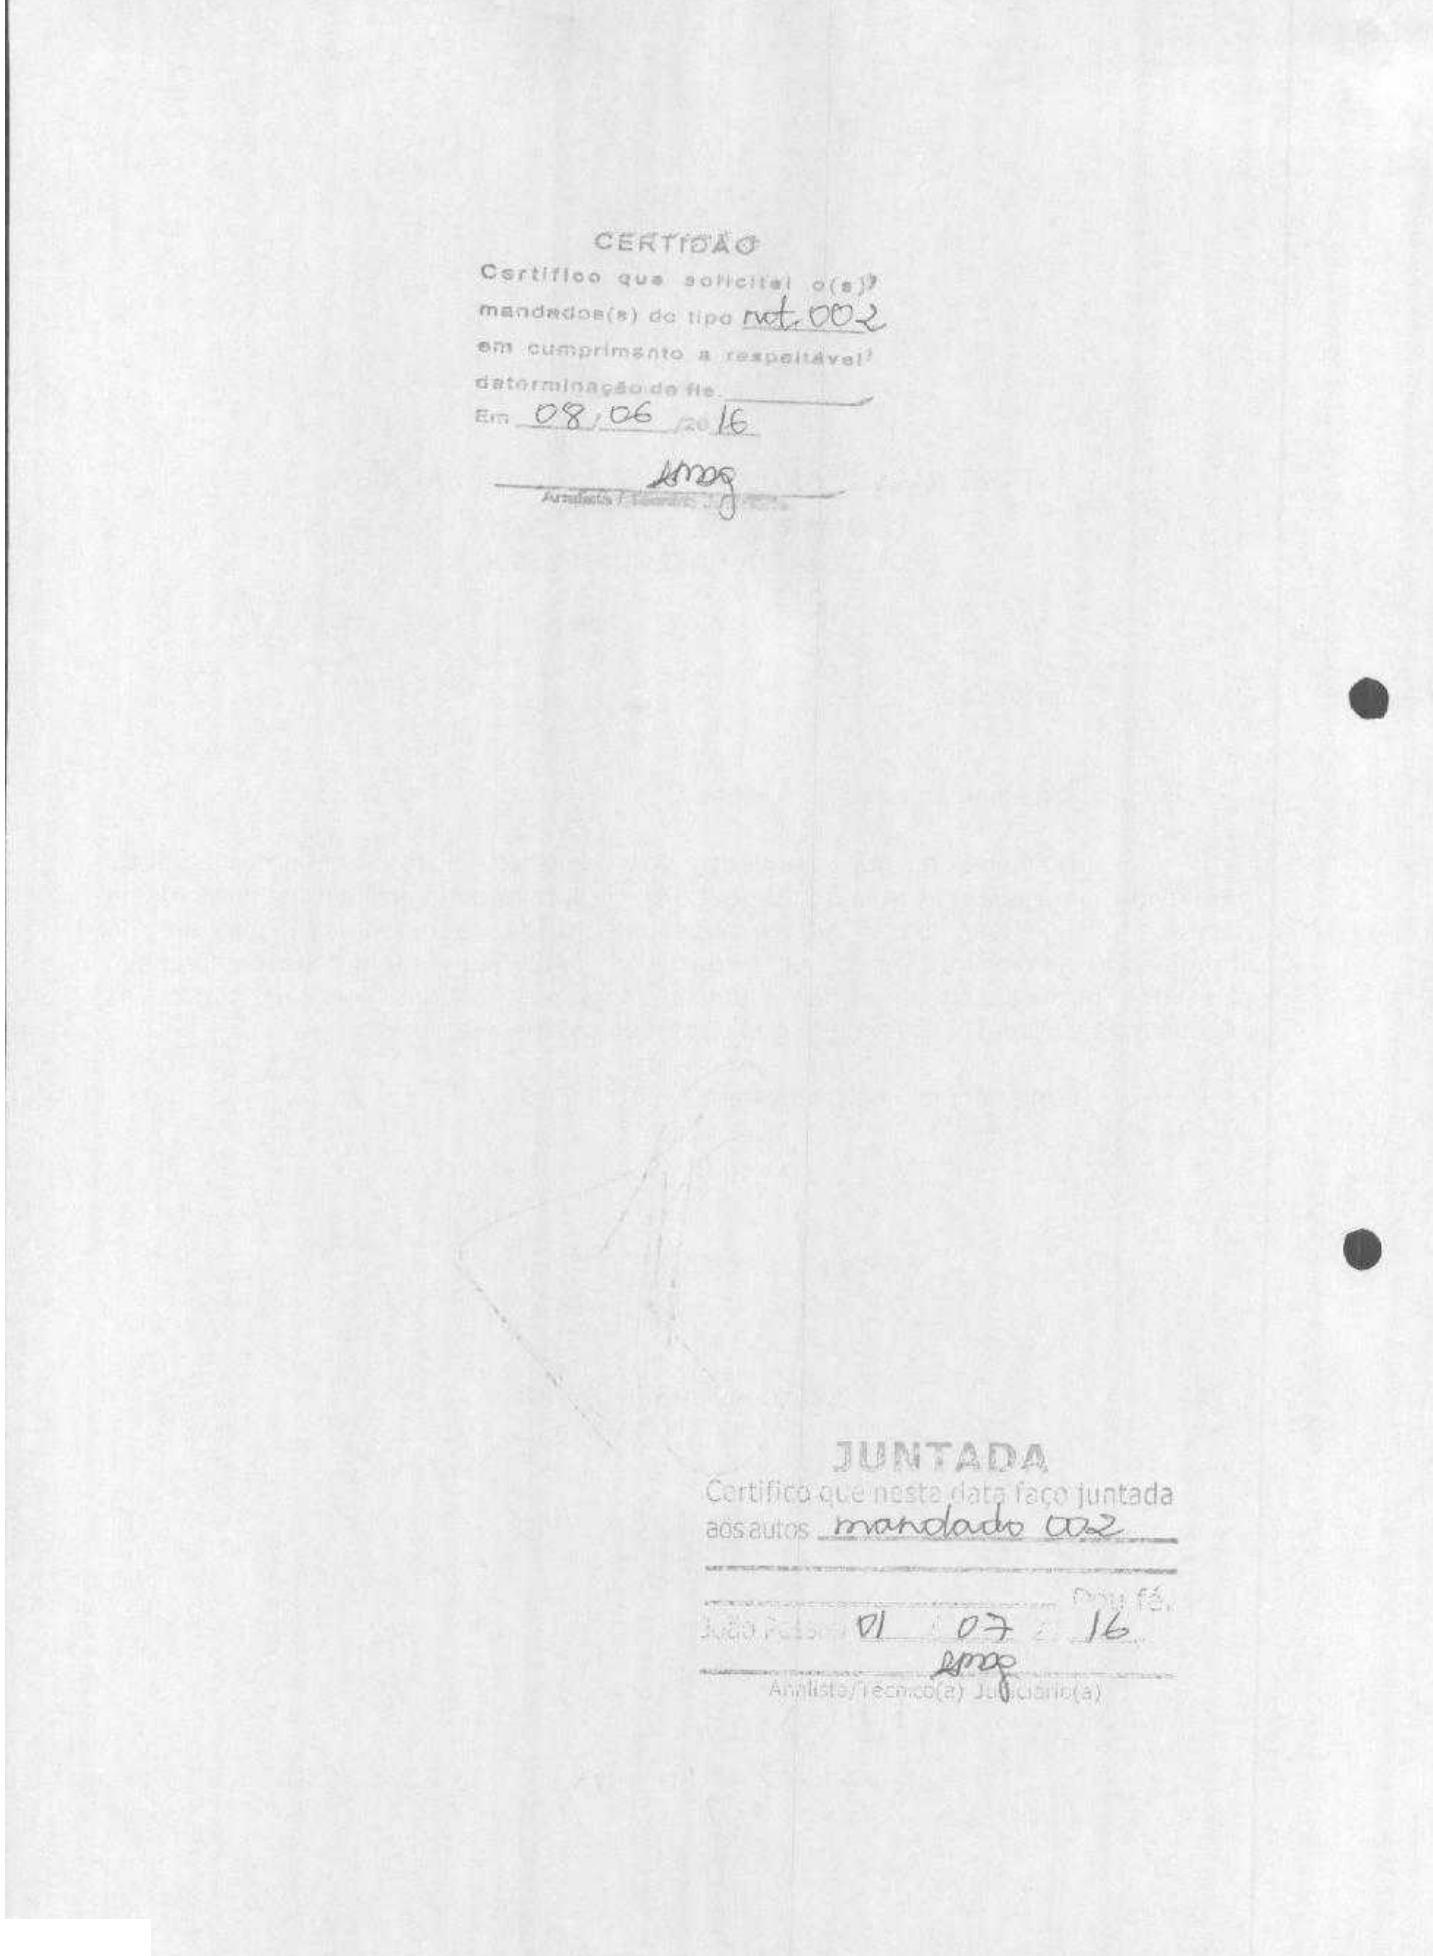 CERTIDÃO
Certifico que solicitei o(s)
mandados(s) do tipo not. 002
em cumprimento a respeitável
determinação de fls.
Em 08/06/2016
Analista / Técnico
JUNTADA
Certifico que nesta data faço juntada
aos autos mandado 002
Dou fé.
João Pessoa 01 / 07 / 16
Analista/Técnico(a) Judiciário(a)